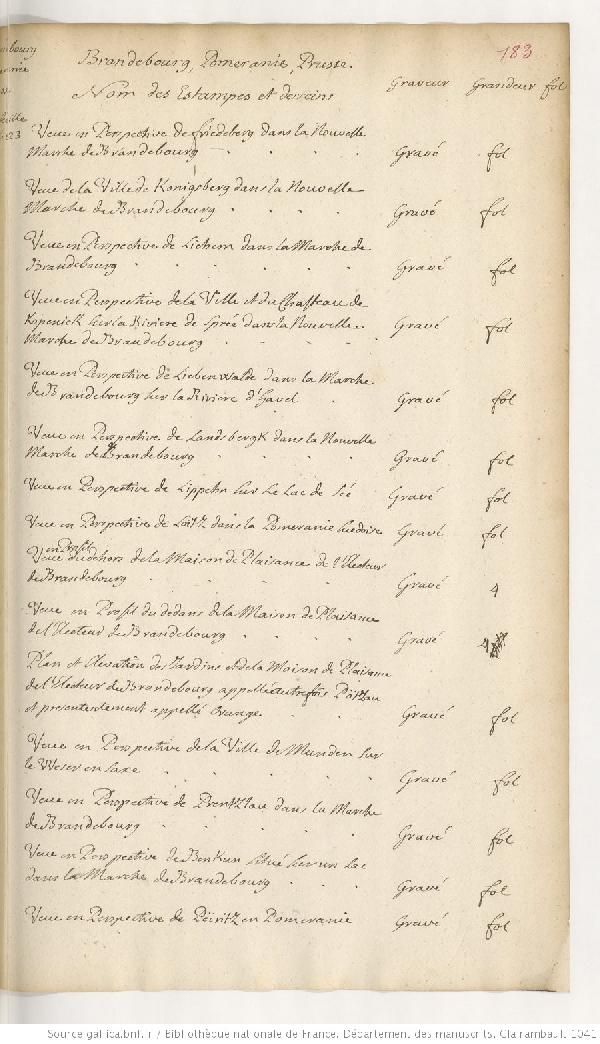 183
Brandebourg, Pomeranie, Prusse.
Nom des Estampes et desseins Graveur Grandeur fol
Veue en Perspective de friedeberg dans la Nouvelle
Marche de Brandebourg Gravé fol
Veue de la Ville de Konigsberg dans la Nouvelle
Marche de Brandebourg Gravé fol
Veue en Perspective de Lichem dans la Marche de
Brandebourg Gravé fol
Veue en Perspective de la Ville et du Chasteau de
Kopenick sur la Riviere de Sprée dans la Nouvelle Gravé fol
Marche de Brandebourg
Veue en Perspective de Lieben walde dans la Marche
de Brandebourg sur la Riviere d'Havel Gravé fol
Veue en Perspective de Landsbergk dans la Nouvelle
Marche de Brandebourg Gravé fol
Veue en Perspective de Lippehn sur Le Lac de Gravé fol
Veue en Perspective de dans la Pomeranie Gravé fol
en Profil
Veue du dehors de la Maison de Plaisance de l'Electeur
de Brandebourg Gravé 4
Veue en Profil du dedans de la Maison de Plaisance
de l'Electeur de Brandebourg Gravé 4
Plan et Elevation des Jardins et de la Maison de Plaisance
de l'Electeur de Brandebourg appellée autrefois
et presentement appellé Orange Gravé fol
Veue en Perspective de la Ville de Munden sur
le Weser en Saxe Gravé fol
Veue en Perspective de Prentzlau dans la Marche
de Brandebourg Gravé fol
Veue en Perspective de Penkun situé sur un Lac
dans la Marche de Brandebourg Gravé fol
Veue en Perspective de en Pomeranie Gravé fol
Source gallica.bnf.fr / Bibliothèque nationale de France. Département des manuscrits. Clairambault 1041